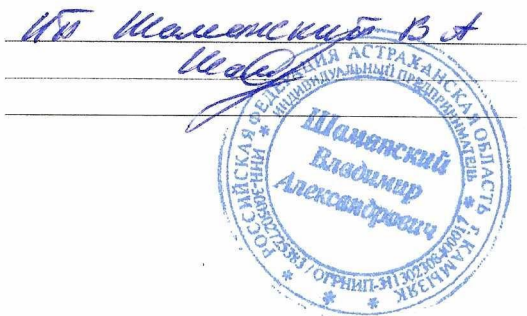 ИП Шаманский В А
РОССИЙСКАЯ ФЕДЕРАЦИЯ АСТРАХАНСКАЯ ОБЛАСТЬ Г. КАМЫЗЯК
ИНДИВИДУАЛЬНЫЙ ПРЕДПРИНИМАТЕЛЬ
Шаманский
Владимир
Александрович